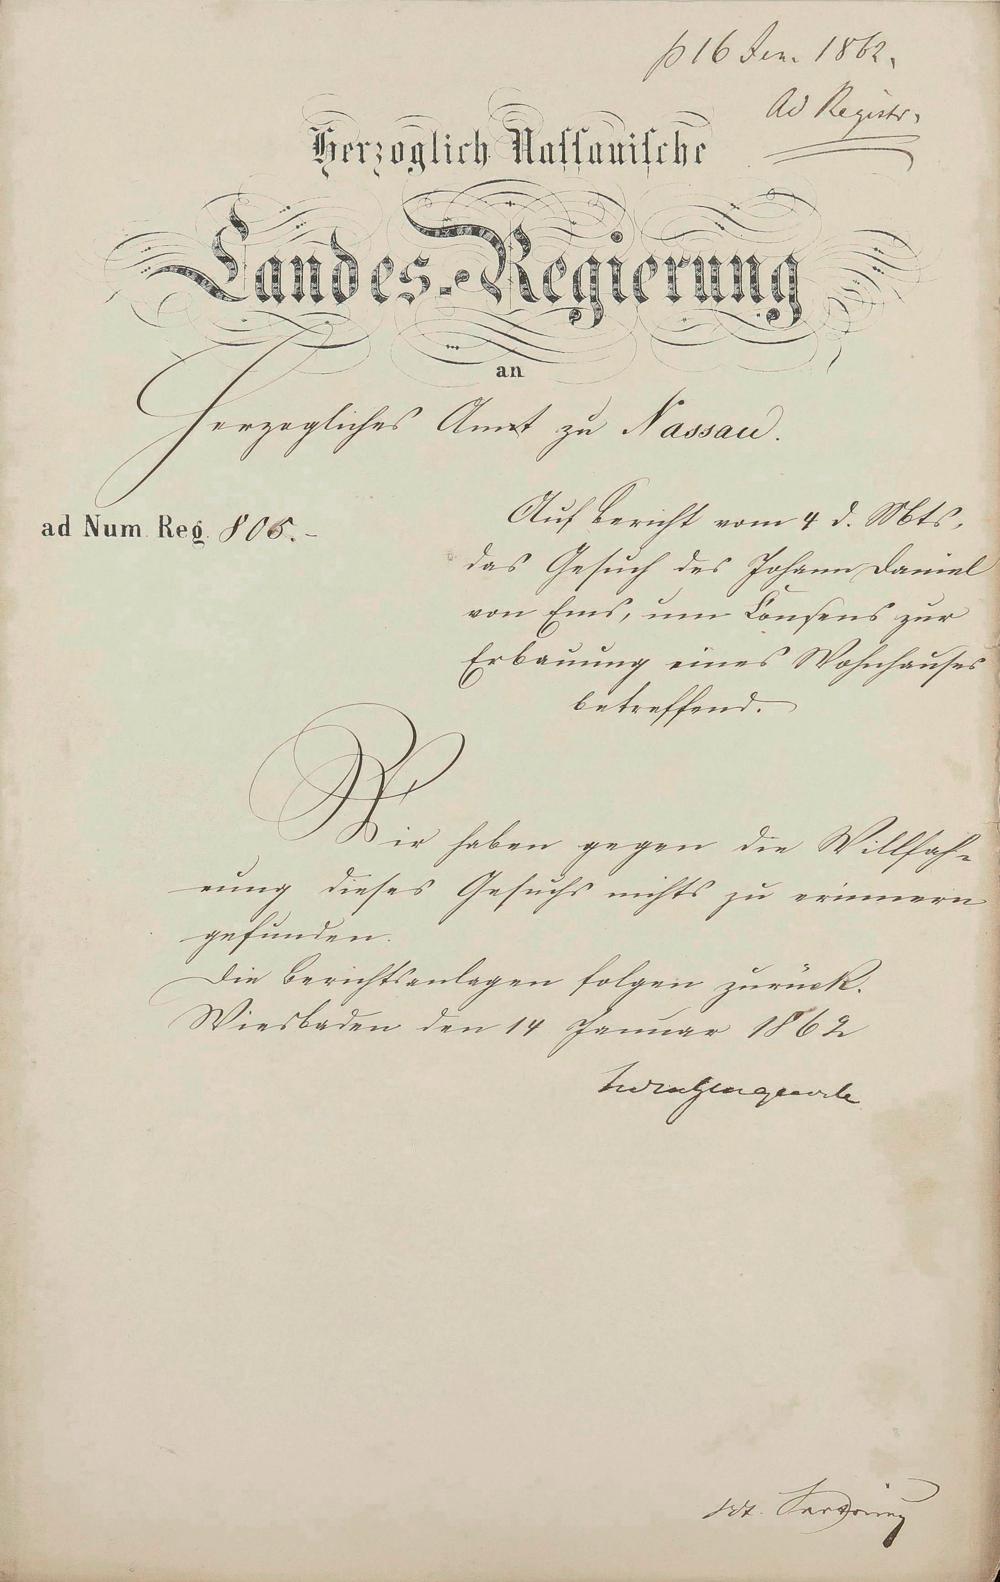 p 16 Jan. 1862.
Ad Registr.
Herzoglich Nassauische
Landes-Regierung
an
Herzogliches Amt zu Nassau.
ad Num. Reg. 805.-
Auf Bericht vom 4 d. Mts.
das Gesuch des Johann Daniel
von Ems, um Consens zur
Erbauung eines Wohnhauses
betreffend.
Wir haben gegen die Willfah-
rung dieses Gesuchs nichts zu erinnern
gefunden.
Die Berichtsanlagen folgen zurück.
Wiesbaden den 14 Januar 1862
vdt.